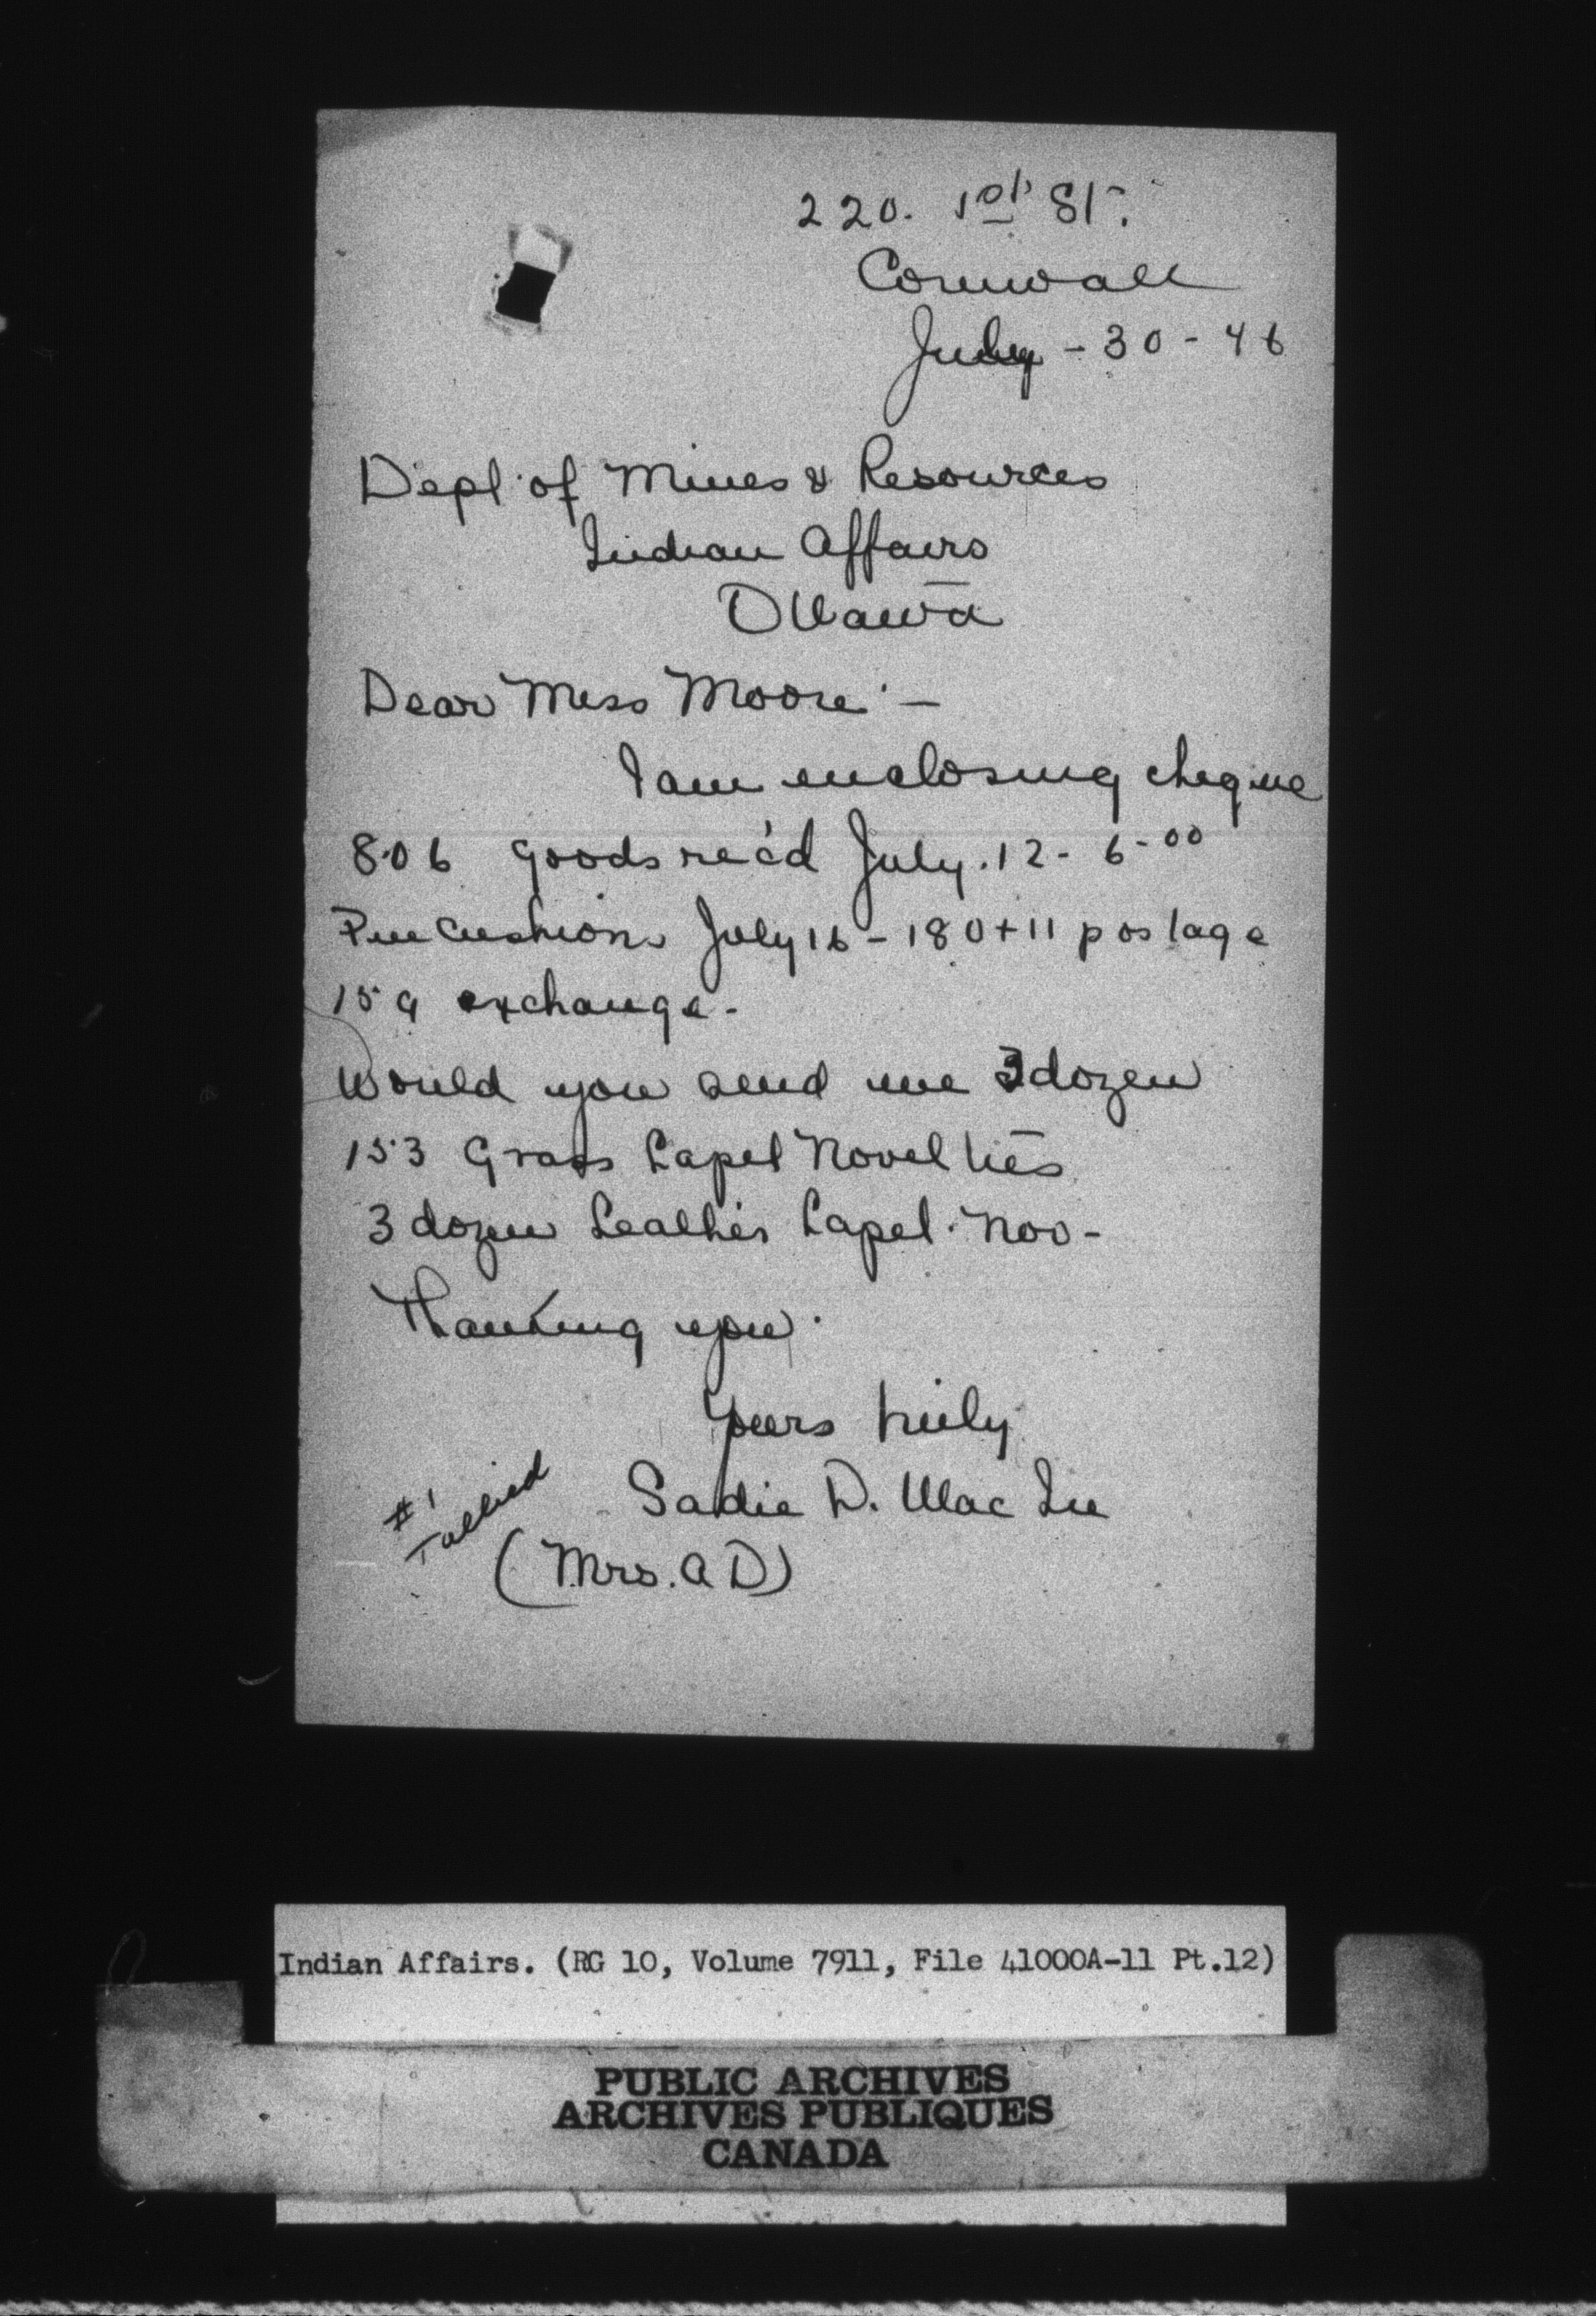 220. 1st St.
Cornwall
July - 30 - 46
Dept of Mines & Resources
Indian Affairs
Ottawa
Dear Miss Moore -
I am enclosing cheque
8.06 goods rec'd July. 12 - 6.00
Pin Cushions July 16 - 180 + 11 postage
15 ¢ exchange.
Would you send me 3 dozen
153 Grass Lapel Novelties
3 dozen Leather Lapel. Nov -
Thanking you.
Yours truly
Sadie D. Mac
#1
Tallied
(Mrs. A D)
Indian Affairs. (RG 10, Volume 7911, File 41000A-11 Pt.12)
PUBLIC ARCHIVES
ARCHIVES PUBLIQUES
CANADA